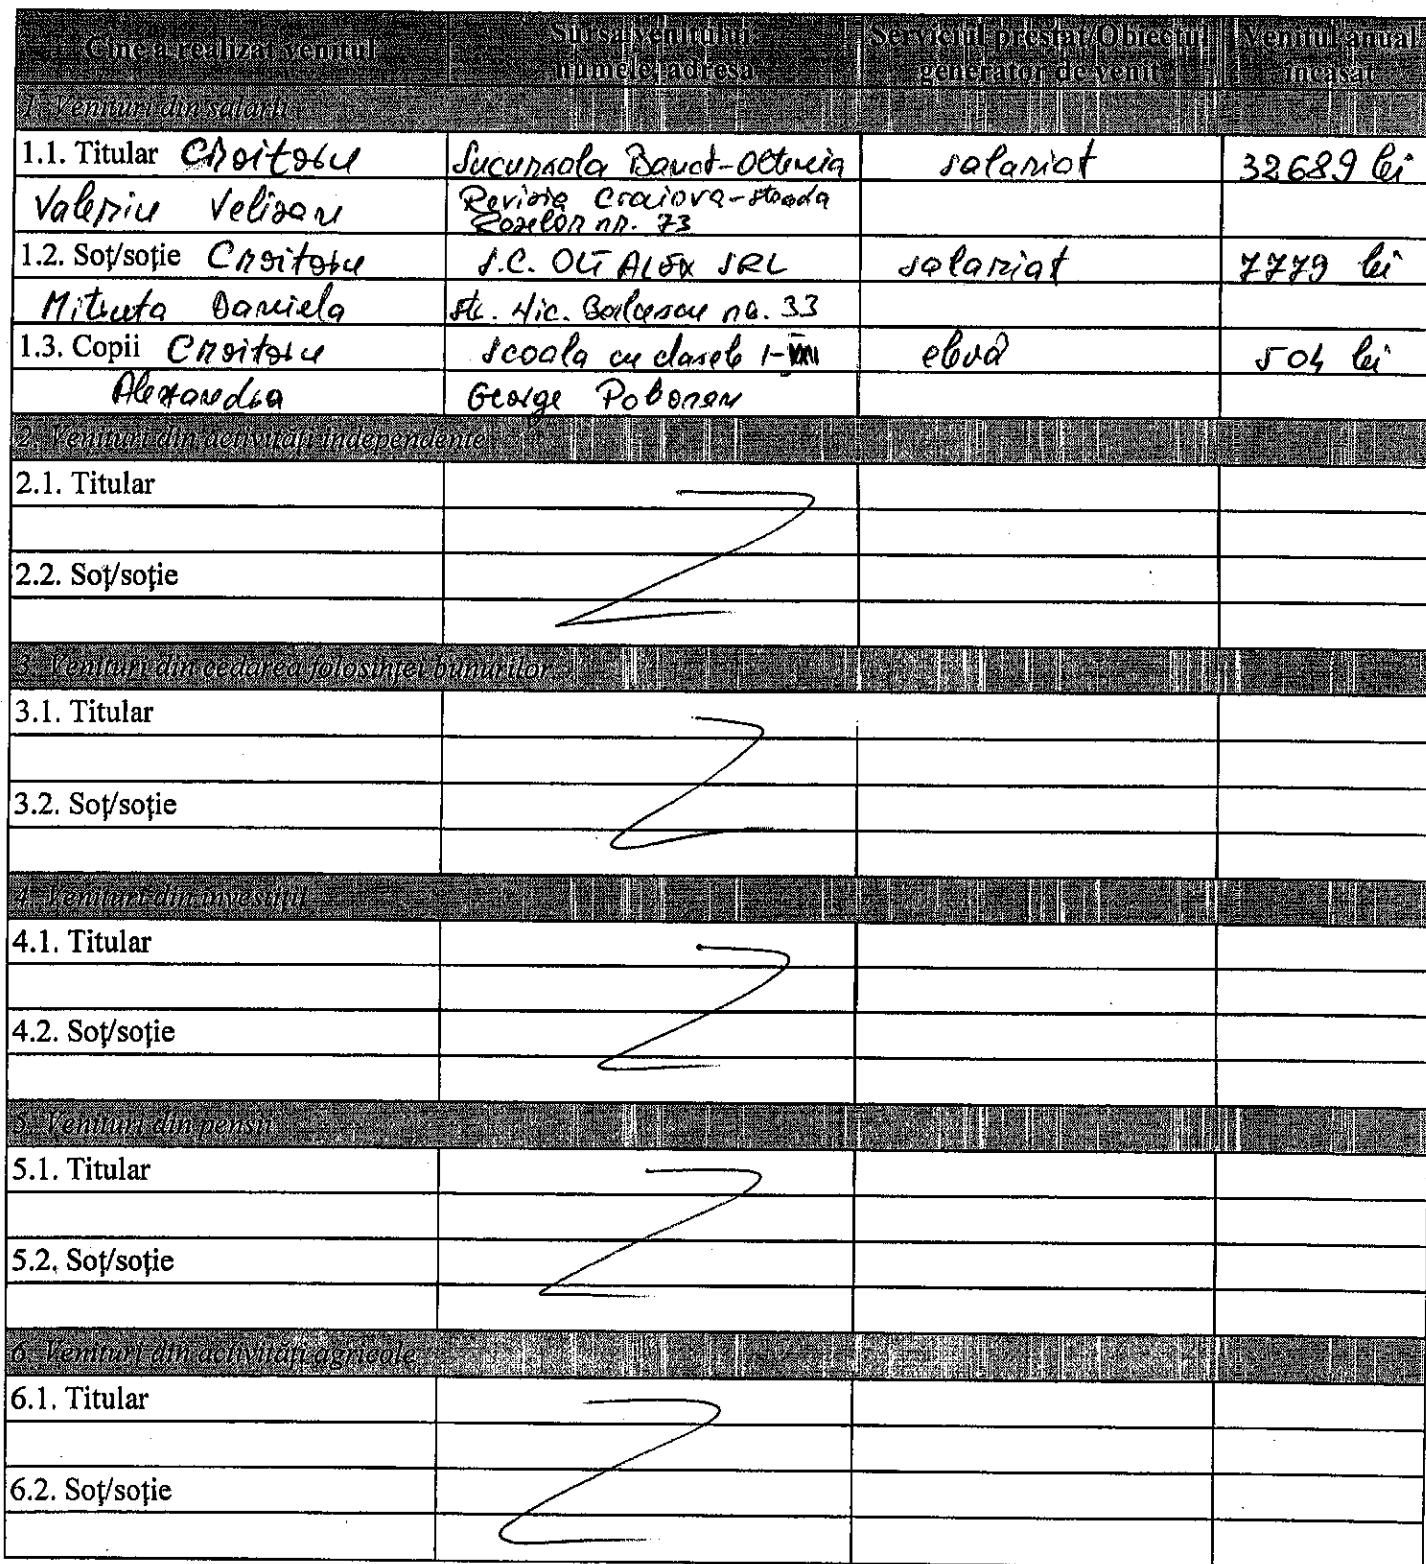 Cine a realizat venitul Sursa venitului: Serviciul prestat/Obiectul Venitul anual
numele, adresa generator de venit încasat
1. Venituri din salarii
1.1. Titular Croitoru Sucursala Banat-Oltenia salariat 32689 lei
Valeriu Velisar Revizia Craiova-strada
Rozelor nr. 73
1.2. Soţ/soţie Croitoru S.C. OLT ALEX SRL salariat 7779 lei
Mitruta Daniela str. Nic. Balcescu nr. 33
1.3. Copii Croitoru scoala cu clasele I-VIII elevă 504 lei
Alexandra George Poboran
2. Venituri din activităţi independente
2.1. Titular
2.2. Soţ/soţie
3. Venituri din cedarea folosinţei bunurilor
3.1. Titular
3.2. Soţ/soţie
4. Venituri din investiţii
4.1. Titular
4.2. Soţ/soţie
5. Venituri din pensii
5.1. Titular
5.2. Soţ/soţie
6. Venituri din activităţi agricole
6.1. Titular
6.2. Soţ/soţie